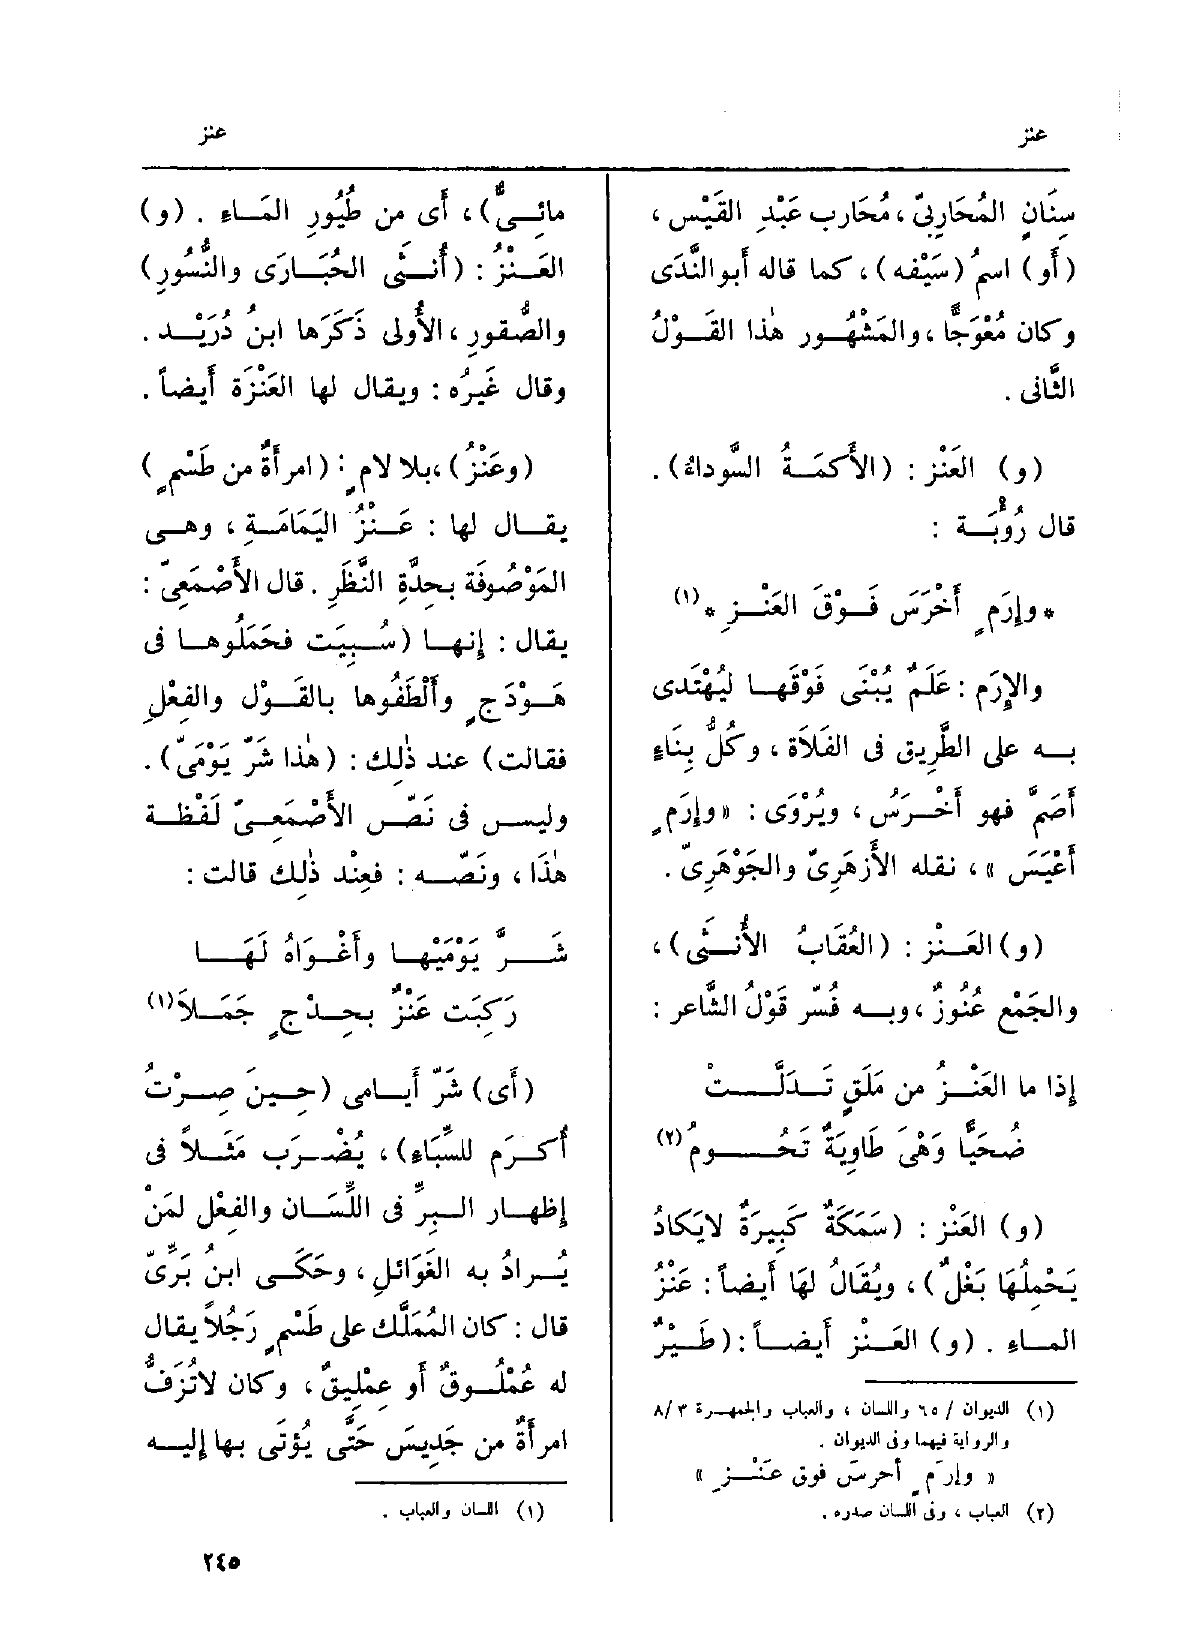 عنز
عنز
سِنَانٍ المُحَارِبىّ ، مُحَارِب عَبْدِ القَيْس ،
(أَو) اسمُ (سَيْفه) ، كما قاله أَبو النَّدَى
وكان مُعْوَجًّا ، والمَشْهُور هٰذا القَوْلُ
الثَّانى .
(و) العَنْز : (الأَكَمَةُ السَّوداءُ) .
قال رُؤْبَة :
* وإِرَمٍ أَخْرَسَ فَوْقَ العَنْزِ * (١)
والإِرَم : عَلَمٌ يُبْنَى فَوْقَها ليُهْتَدى
به على الطَّريق فى الفَلاَة ، وكُلُّ بِنَاءٍ
أَصَمَّ فهو أَخْرَسُ ، ويُرْوَى : « وإِرَمٍ
أَعْيَسَ » ، نقله الأَزهَرِىّ والجَوْهَرِىّ .
(و) العَنز : (العُقَابُ الأُنثَى) ،
والجَمْع عُنُوزٌ ، وبه فُسِّر قَوْلُ الشَّاعر :
إِذا ما العَنْزُ من مَلَقٍ تَدَلَّتْ
ضُحَيًّا وَهْىَ طَاوِيَةٌ تَحُومُ (٢)
(و) العَنْز : (سَمَكَةٌ كَبِيرَةٌ لايَكَادُ
يَحْمِلُهَا بَغْلٌ) ، ويُقَالُ لهَا أَيضاً : عَنْزُ
الماء . (و) العَنز أَيضاً : (طَيْرٌ
(١) الديوان / ٦٥ واللسان ، والعباب والجمهرة ٣ /٨
والرواية فيهما وفى الديوان .
« وإرَمٍ أحرسَ فوق عَنْزِ »
(٢) العباب ، وفى اللسان صدره .
مائِىٌّ) ، أَى من طُيُورِ المَاءِ . (و)
العَنْزُ : (أُنثَى الحُبَارَى والنُّسُورِ)
والصُّقورِ ، الأُولى ذَكَرَها ابنُ دُرَيْد .
وقال غَيرُه : ويقال لها العَنْزَة أَيضاً .
(وعَنْزُ) ، بلا لامٍ : (امرأَةٌ من طَسْمٍ)
يقال لها : عَنْزُ اليَمَامَةِ ، وهى
المَوْصُوفَة بحِدَّةِ النَّظَرِ . قال الأَصْمَعِىّ :
يقال : إِنها (سُبِيَت فحَمَلُوها فى
هَوْدَجٍ وأَلْطَفُوها بالقَوْل والفِعْلِ
فقالت) عند ذٰلِك : (هٰذا شَرّ يَوْمَىّ) .
وليس فى نَصّ الأَصْمَعىّ لَفْظة
هٰذَا ، ونَصّه : فعِنْد ذٰلِك قالت :
شَرُّ يَوْمَيْها وأَغْوَاهُ لَهَا
رَكِبَت عَنْزٌ بحِدْجٍ جَمَلاَ (١)
(أَى) شَرّ أَيامى (حِينَ صِرْتُ
أُكرَم للسِّبَاءِ) ، يُضْرَب مَثَلاً فى
إِظهار البِرّ فى اللِّسَان والفِعْل لمَنْ
يُرادُ به الغَوَائلِ ، وحَكَى ابنُ بَرِّىّ
قال : كان المُمَلَّك على طَسْمٍ رَجُلاً يقال
له عُمْلُوقٌ أَو عِمْلِيقٌ ، وكان لاتُزَفُّ
امرأَةٌ من جَدِيسَ حَتَّى يُؤتَى بها إِليه
(١) اللسان والعباب .
٢٤٥